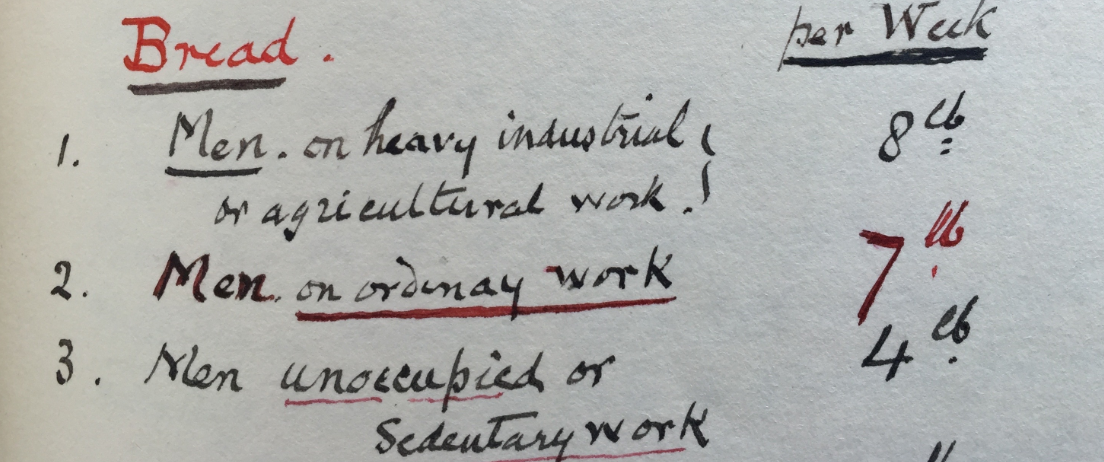 Bread. per Week
1. Men. on heavy industrial 8 lb
or agricultural work.
2. Men. on ordinay work 7 lb
3. Men unoccupied or 4 lb
Sedentary work